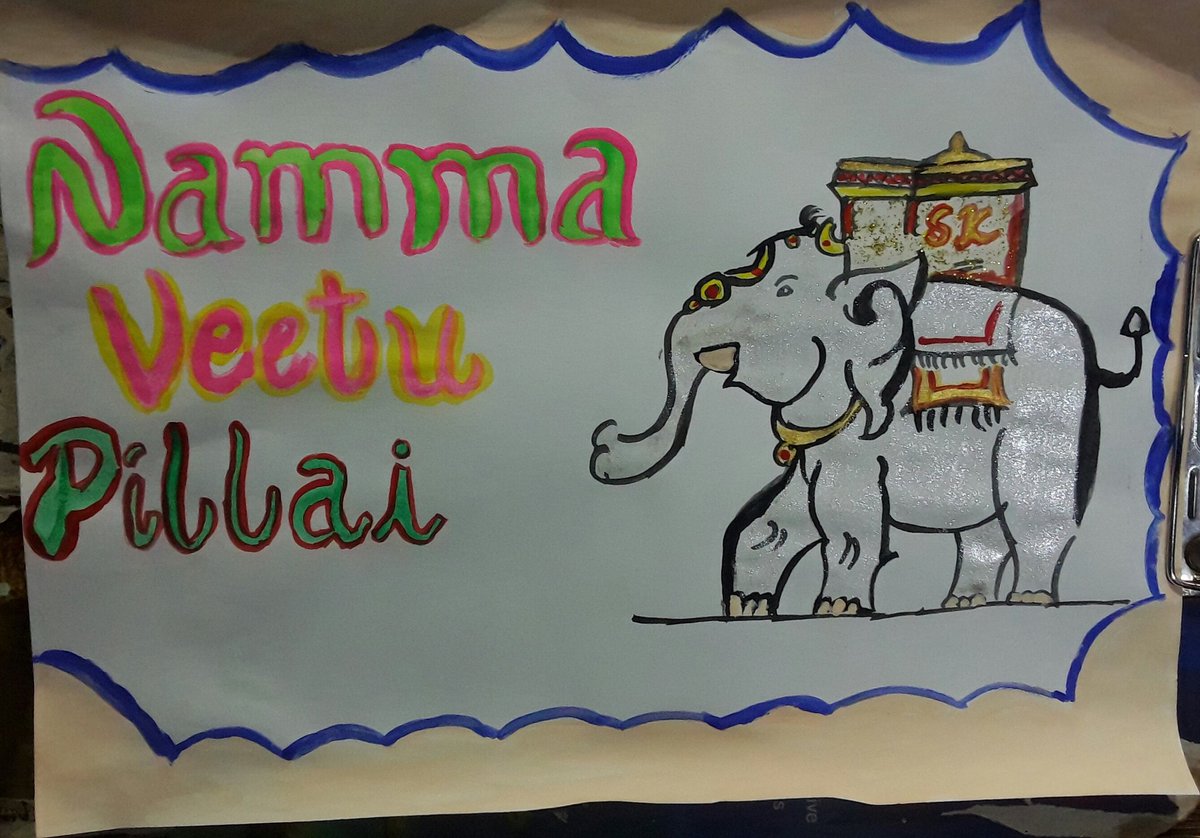 Namma
Veetu
Pillai
SK